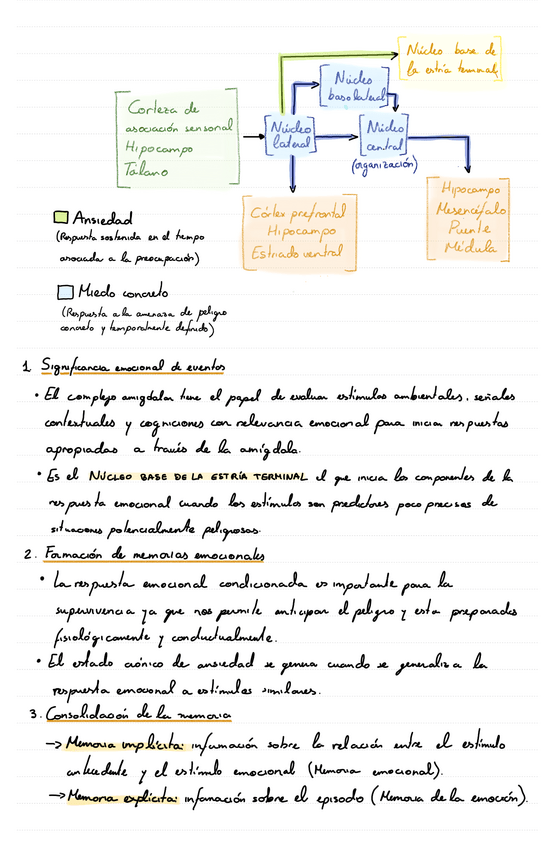 Núcleo base de
la estría terminal
Núcleo
basolateral
Corteza de
asociación sensorial
Hipocampo
Tálamo
Núcleo
lateral
Núcleo
central
(organización)
Córtex prefrontal
Hipocampo
Estriado ventral
Hipocampo
Mesencéfalo
Puente
Médula
Ansiedad
(Respuesta sostenida en el tiempo
asociada a la preocupación)
Miedo concreto
(Respuesta a la amenaza de peligro
concreto y temporalmente definido)
1 Significancia emocional de eventos
• El complejo amigdalar tiene el papel de evaluar estímulos ambientales, señales
contextuales y cogniciones con relevancia emocional para iniciar respuestas
apropiadas a través de la amígdala.
• Es el NÚCLEO BASE DE LA ESTRÍA TERMINAL el que inicia los componentes de la
respuesta emocional cuando los estímulos son predictores poco precisos de
situaciones potencialmente peligrosas.
2. Formación de memorias emocionales
• La respuesta emocional condicionada es importante para la
supervivencia ya que nos permite anticipar el peligro y estar preparados
fisiológicamente y conductualmente.
• El estado crónico de ansiedad se genera cuando se generaliza la
respuesta emocional a estímulos similares.
3. Consolidación de la memoria
→ Memoria implícita: información sobre la relación entre el estímulo
antecedente y el estímulo emocional (Memoria emocional).
→ Memoria explícita: información sobre el episodio (Memoria de la emoción).